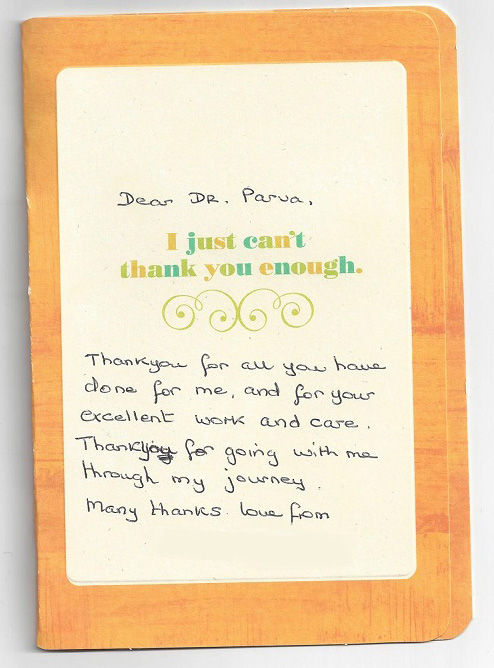 Dear DR. Parva,
I just can't
thank you enough.
Thankyou for all you have
done for me, and for your
excellent work and care.
Thankyou for going with me
through my journey.
Many thanks. love from